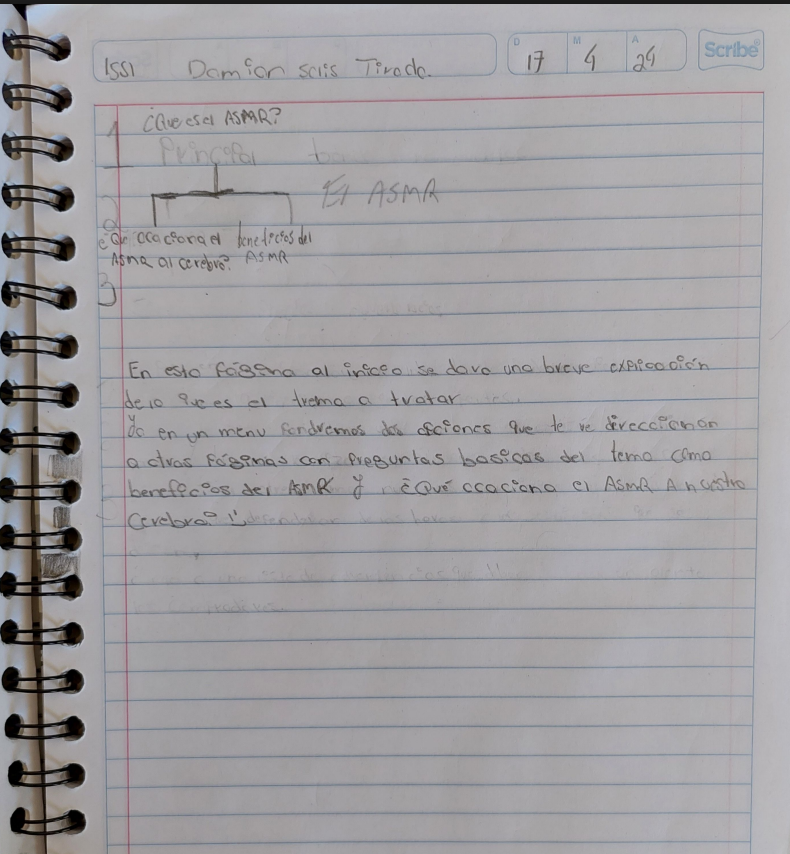 1SS1 Damian Solis Tirado.
D 17 M 4 A 24
Scribe
1 ¿Que es el ASMR?
Principal
El ASMR
2
¿Que ocaciona el beneficios del
Asmr al cerebro? ASMR
3
En esta página al inicio se dara una breve explicación
de lo que es el trema a tratar
Ya en un menu pondremos dos opciones que te re direccionan
a otras páginas con preguntas basicas del tema como
beneficios del AMR y ¿Qué ocaciona el ASMR A nuestro
cerebro?